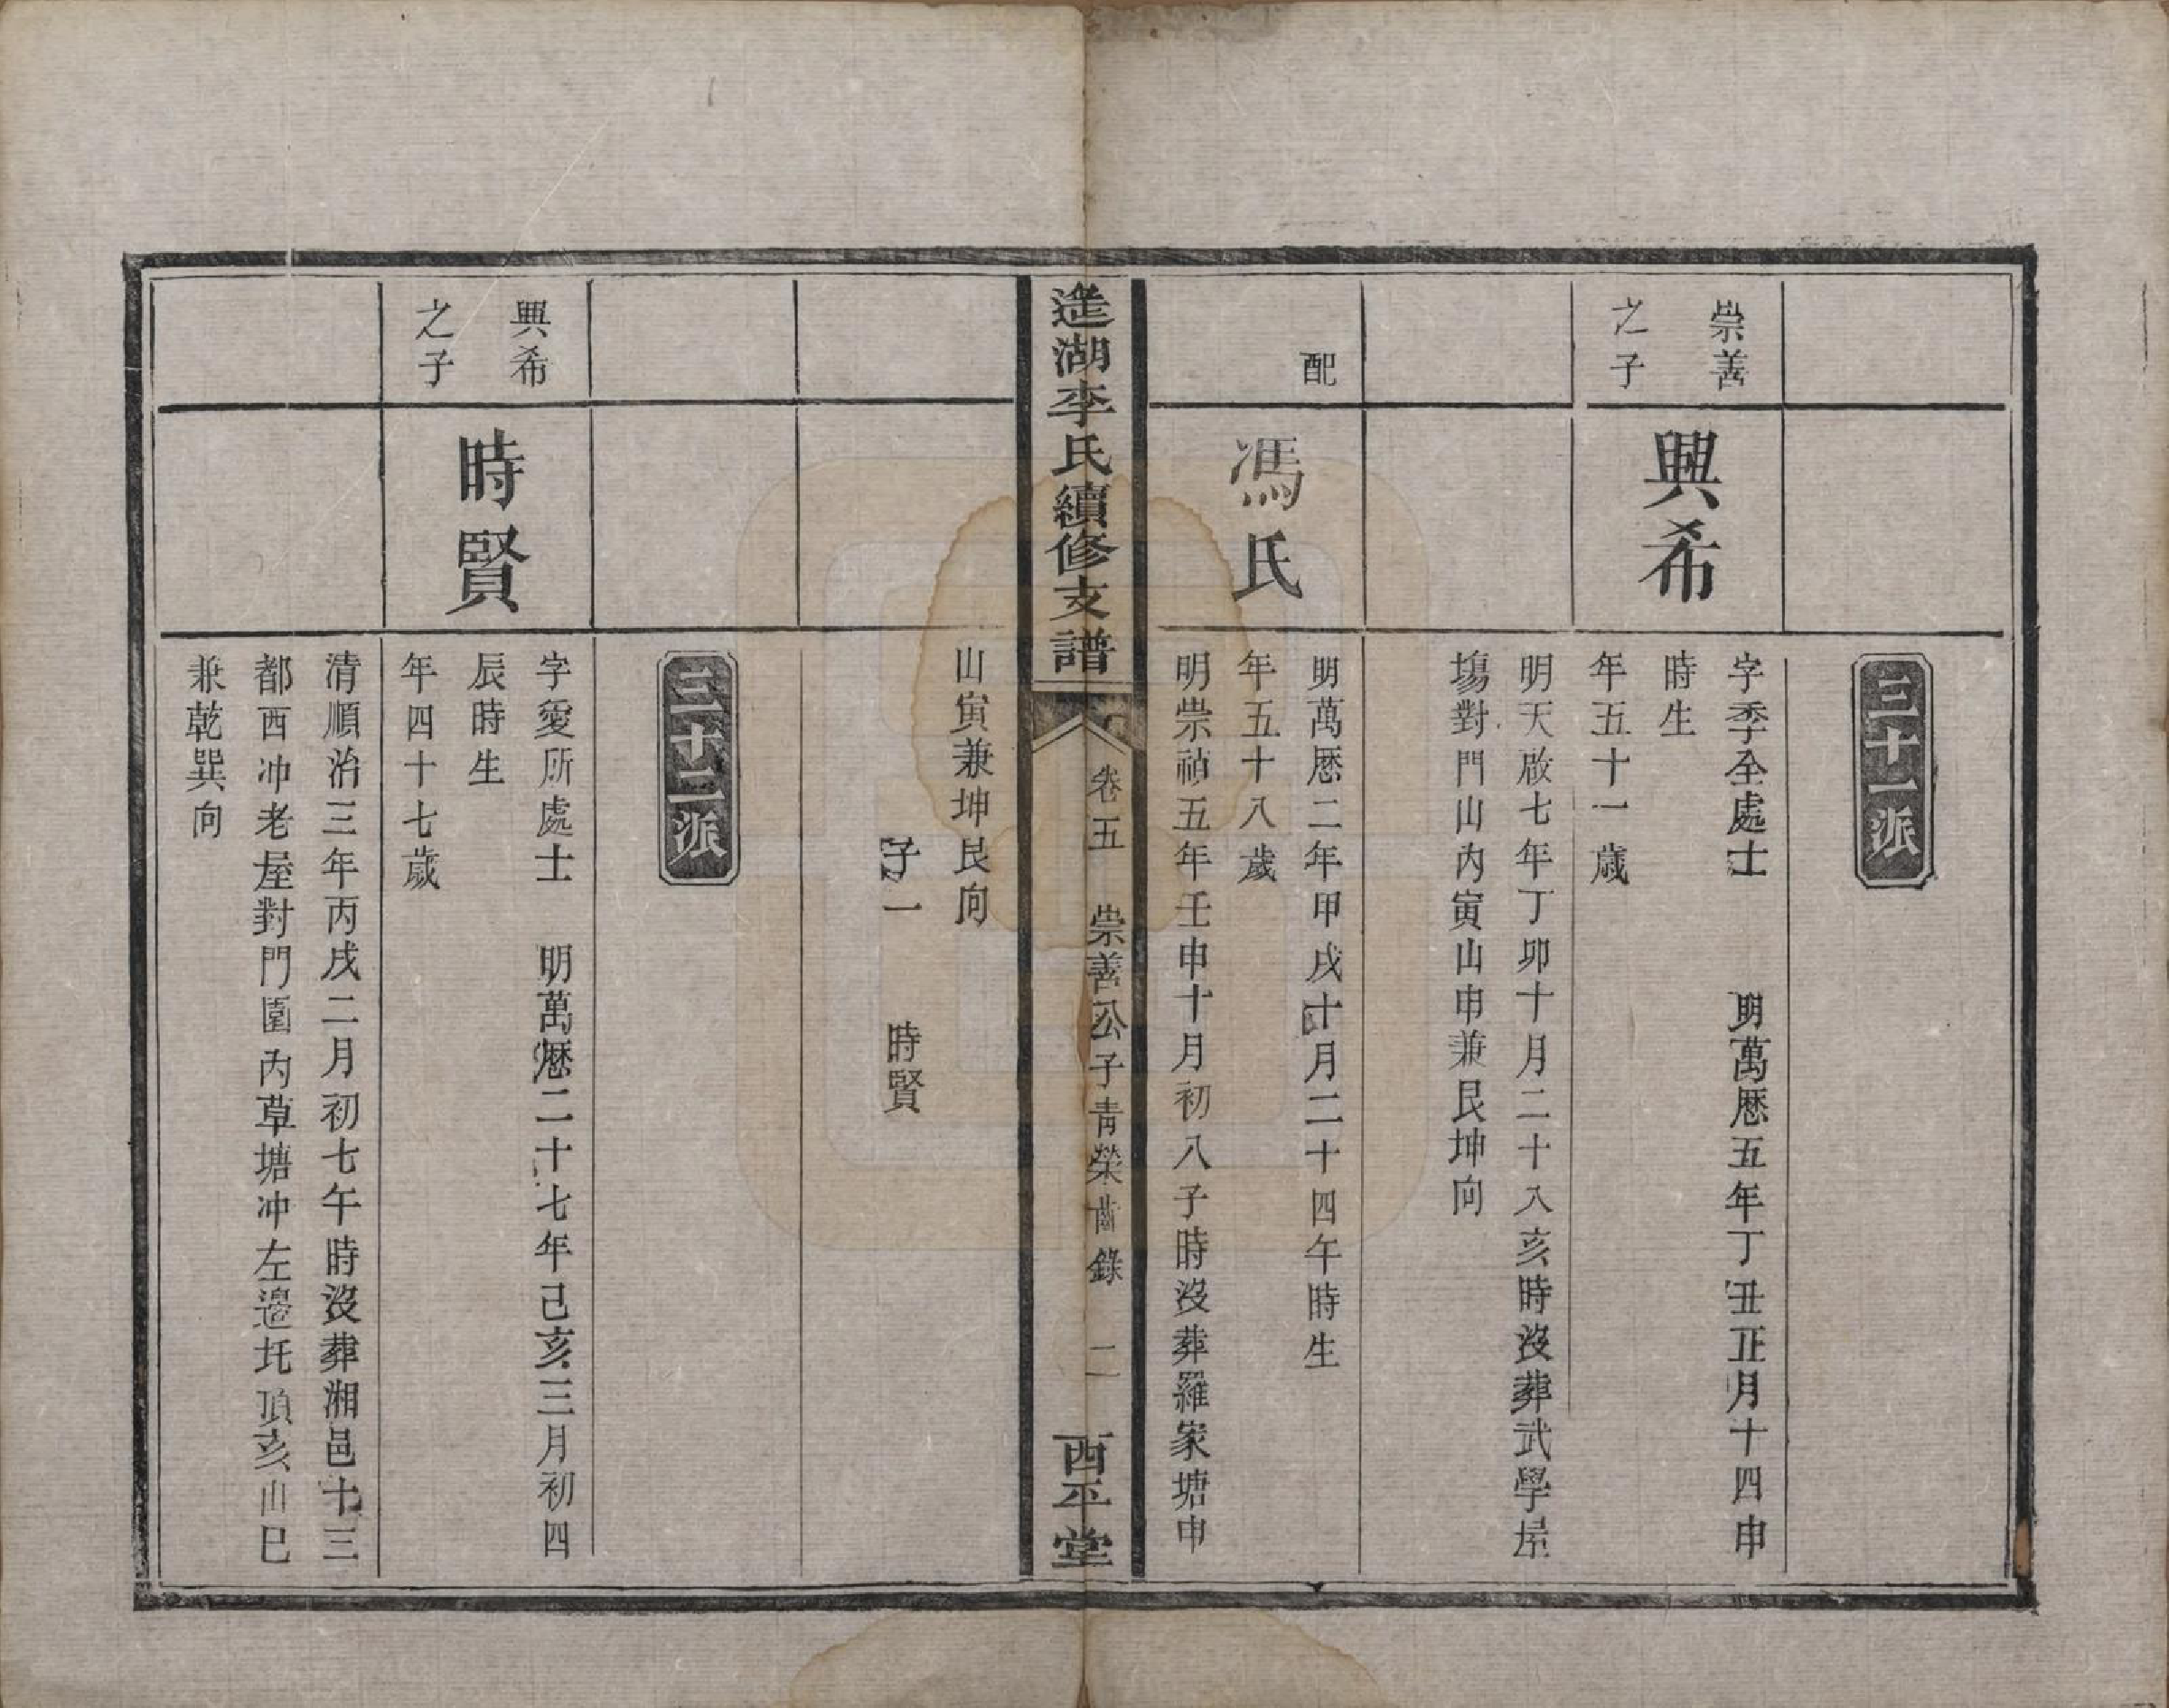 三十一派
崇善
之子
興希
字季全處士　明萬厯五年丁丑正月十四申
時生
年五十一歲
明天啟七年丁卯十月二十八亥時沒葬武學屋
塲對門山內寅山申兼艮坤向
配
馮氏
明萬厯二年甲戌十月二十四午時生
年五十八歲
明崇禎五年壬申十月初八子時沒葬羅家塘申
湖李氏續修支譜
卷五　崇善公子青榮齒錄　二
西平堂
山寅兼坤艮向
子一　時賢
三十二派
興希
之子
時賢
字愛所處士　明萬厯二十七年己亥三月初四
辰時生
年四十七歲
清順治三年丙戌二月初七午時沒葬湘邑十三
都西冲老屋對門園內草塘冲左邊圫頂亥山巳
兼乾巽向